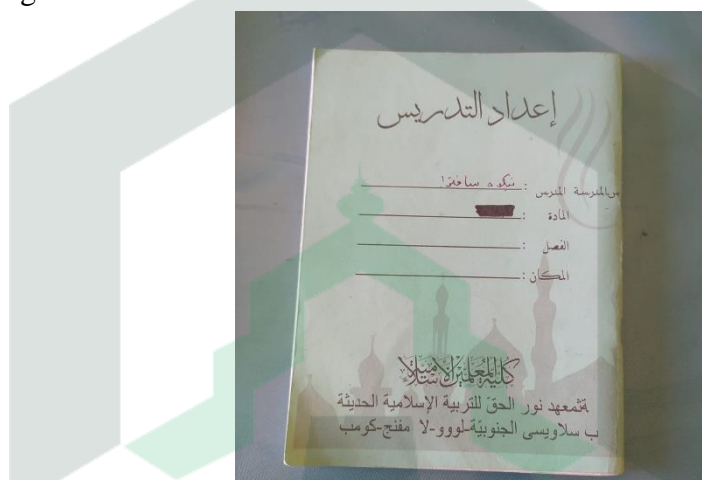 إعداد التدريس
المدرس :
المادة :
الفصل :
المكان :
كلية المعلمين الإسلامية
معهد نور الحق للتربية الإسلامية الحديثة
سلاويسى الجنوبيّة-لووو-لا مفنج-كومب